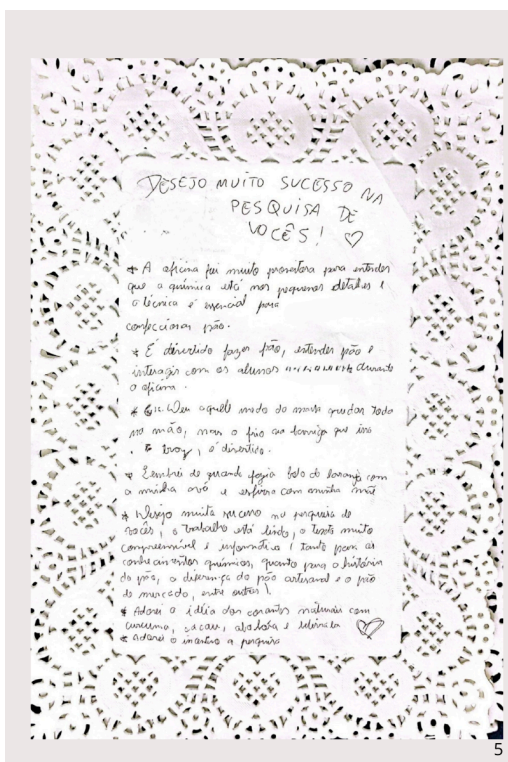 DESEJO MUITO SUCESSO NA
PESQUISA DE
VOCÊS! ♡
* A oficina foi muito proveitosa para entender
que a química está nos pequenos detalhes e
a técnica é essencial para
confeccionar pão.
* É divertido fazer pão, entender pão e
interagir com os alunos durante
a oficina.
* Deu aquele medo da massa grudar toda
na mão, mas o frio na barriga que isso
traz, é divertido.
* Lembrei de quando fazia bolo de laranja com
a minha avó e esfirra com minha mãe
* Desejo muito sucesso na pesquisa de
vocês, o trabalho está lindo, o texto muito
compreensível e informativo (tanto para os
conhecimentos químicos, quanto para a história
do pão, a diferença do pão artesanal e o pão
de mercado, entre outros).
* Adorei a idéia dos corantes naturais com
cúrcuma, cacau, abobora e beterraba
* adorei o incentivo a pesquisa
5